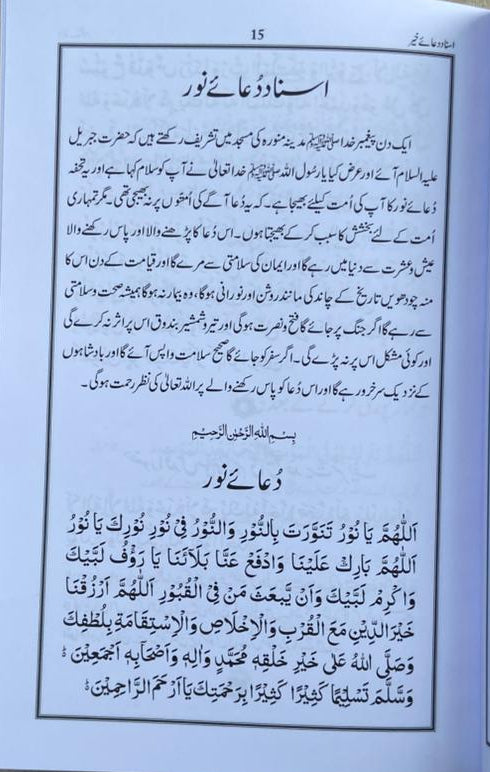 15
اسناد دعائے خیر
اسناد دُعائے نور
ایک دن پیغمبر خدا ﷺ مدینہ منورہ کی مسجد میں تشریف رکھتے ہیں کہ حضرت جبریل
علیہ السلام آئے اور عرض کیا یا رسُول اللہ ﷺ خدا تعالیٰ نے آپ کو سلام کہا ہے اور یہ تحفہ
دُعائے نور کا آپ کی اُمت کیلئے بھیجا ہے۔ کہ یہ دُعا آگے کی اُمتوں پر نہ بھیجی تھی۔ مگر تمہاری
اُمت کے لئے بخشش کا سبب کر کے بھیجتا ہوں۔ اس دُعا کا پڑھنے والا اور پاس رکھنے والا
عیش و عشرت سے دنیا میں رہے گا اور ایمان کی سلامتی سے مرے گا اور قیامت کے دن اس کا
منہ چودھویں تاریخ کے چاند کی مانند روشن اور نورانی ہوگا، وہ بیمار نہ ہوگا ہمیشہ صحت و سلامتی
سے رہے گا اگر جنگ پر جائے گا فتح و نصرت ہوگی اور تیر و شمشیر بندوق اس پر اثر نہ کرے گی
اور کوئی مشکل اس پر نہ پڑے گی۔ اگر سفر کو جائے گا صحیح سلامت واپس آئے گا اور بادشاہوں
کے نزدیک سرخرو رہے گا اور اس دُعا کو پاس رکھنے والے پر اللہ تعالیٰ کی نظر رحمت ہوگی۔
بِسْمِ اللهِ الرَّحْمٰنِ الرَّحِيْمِ
دُعائے نور
اَللّٰهُمَّ يَا نُوْرُ تَنَوَّرَتَ بِالنُّوْرِ وَالنُّوْرُ فِىْ نُوْرِ نُوْرِكَ يَا نُوْرُ
اَللّٰهُمَّ بَارِكْ عَلَيْنَا وَادْفَعْ عَنَّا بَلَآئَنَا يَا رَؤُفُ لَبَّيْكَ
وَاكْرِمْ لَبَّيْكَ وَاَنْ يَّبعَثَ مَنْ فِى الْقُبُوْرِ اَللّٰهُمَّ ارْزُقْنَا
خَيْرَ الدِّيْنِ مَعَ الْقُرْبِ وَالْاِخْلَاصِ وَالْاِسْتِقَامَةِ بِلُطْفِكَ
وَصَلَّى اللهُ عَلٰى خَيْرِ خَلْقِهٖ مُحَمَّدٍ وَاٰلِهٖ وَاَصْحَابِهٖ اَجْمَعِيْنَ ؕ
وَسَلَّمَ تَسْلِيْمًا كَثِيْرًا كَثِيْرًا بِرَحْمَتِكَ يَآ اَرْحَمَ الرَّاحِمِيْنَ ؕ